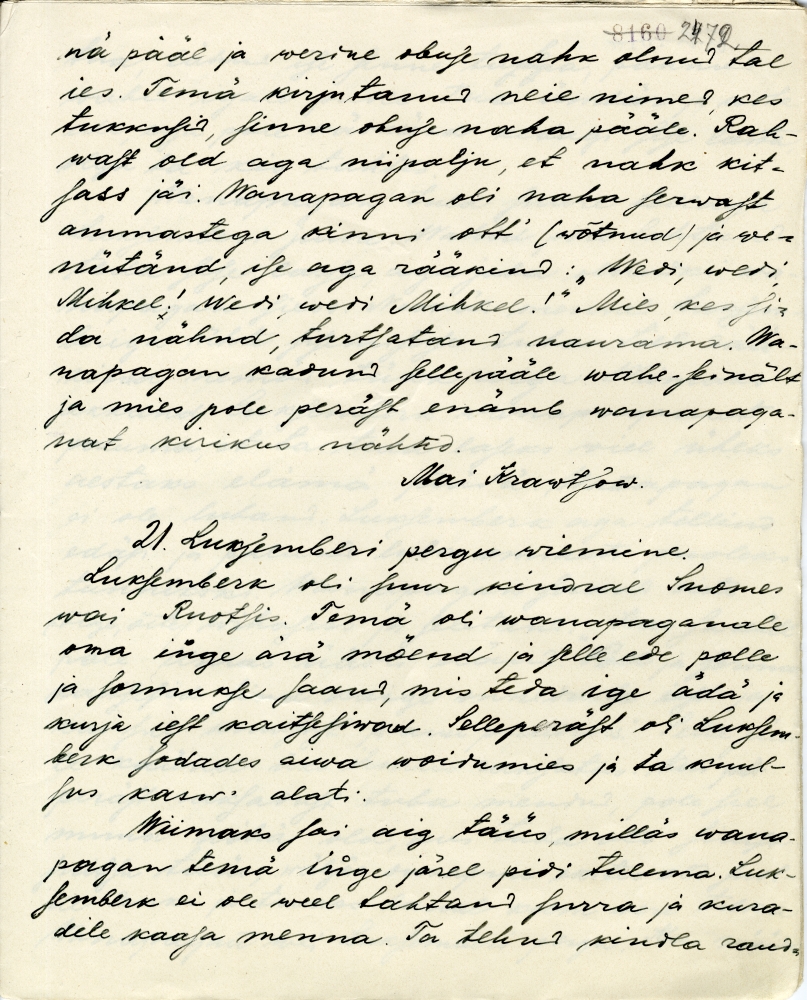 8160 2472.
nä pääl ja werine obuse nahk olnud tal
ies. Temä kirjutanud neie nimed, kes
tukkusid, sinne obuse naha pääle. Rah-
wast old aga niipalju, et nahk kit-
sass jäi. Wanapagan oli naha serwast
ammastega kinni ott' (wõtnud) ja we-
nütänd, ise aga rääkind: „Wedi, wedi,
Mihkel! Wedi, wedi Mihkel!" Mies, kes si-
da nähnd, turtsatand naurama. Wa-
napagan kadund sellepääle wahe-seinält
ja mies pole peräst enämb wanapaga-
nat kirikus nähnd.
Mai Krawtsow.
21. Luksemberi pergu wiemine.
Luksemberk oli suur kindral Suomes
wai Ruotsis. Temä oli wanapaganale
oma inge ärä möend ja selle ede polle
ja sormukse saand, mis teda ige ädä ja
kurja iest kaitsesiwad. Selleperäst oli Luksem-
berk sodades aiwa woidumies ja ta kuul-
sus kasw' alati.
Wiimaks sai aig täüs, milläs wana-
pagan temä inge järel pidi tulema. Luk-
semberk ei ole weel tahtand surra ja kura-
dile kaasa menna. Ta tehnd kindla raud-